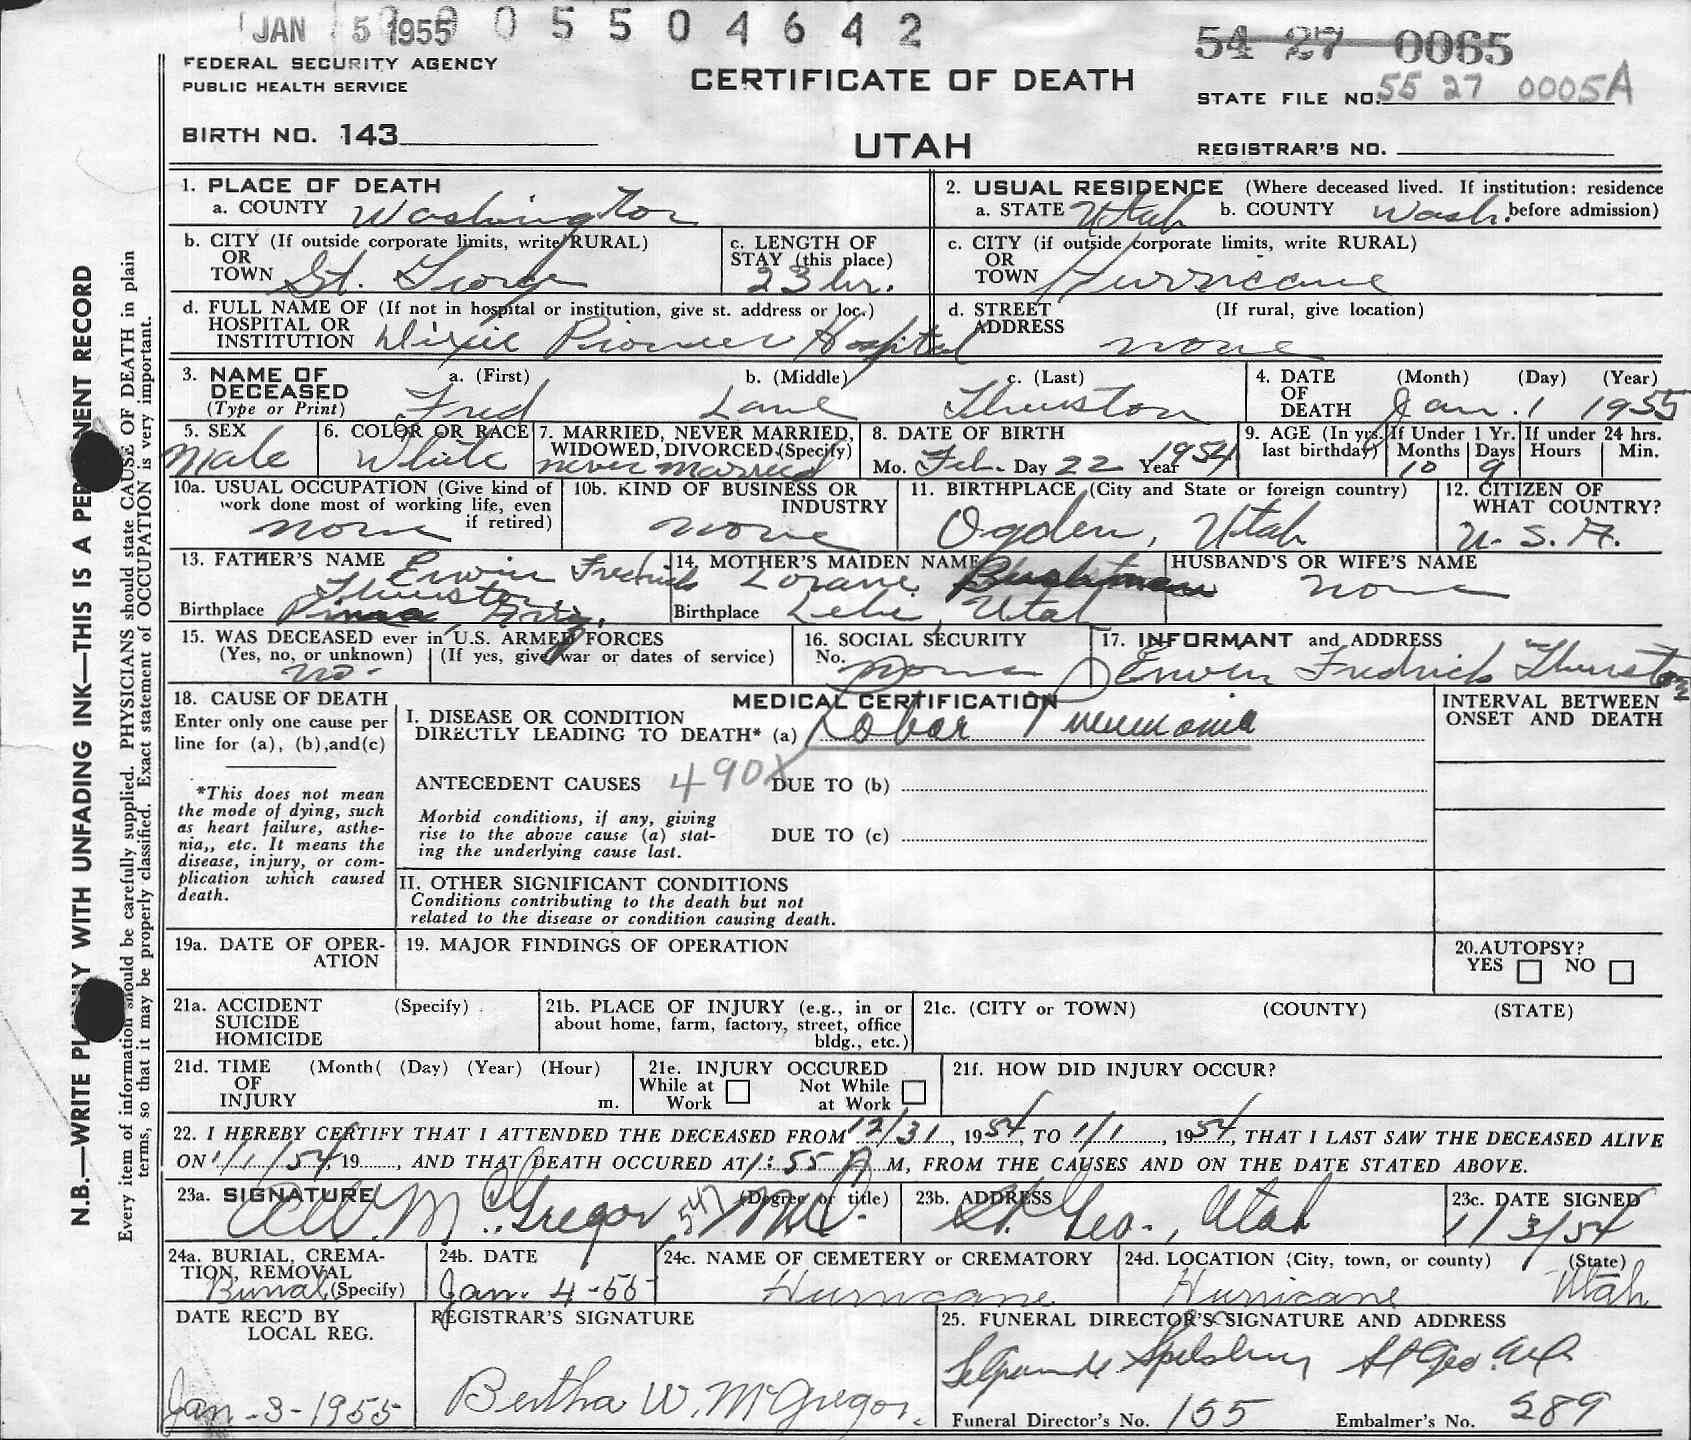 JAN 5 1955 005504642
54 27 0065
FEDERAL SECURITY AGENCY
PUBLIC HEALTH SERVICE
CERTIFICATE OF DEATH
STATE FILE NO. 55 27 0005A
BIRTH NO. 143
UTAH
REGISTRAR'S NO.
1. PLACE OF DEATH
a. COUNTY Washington
2. USUAL RESIDENCE (Where deceased lived. If institution: residence before admission)
a. STATE Utah b. COUNTY Wash.
b. CITY (If outside corporate limits, write RURAL)
OR
TOWN St. George
c. LENGTH OF
STAY (this place)
23 hr.
c. CITY (if outside corporate limits, write RURAL)
OR
TOWN Hurricane
d. FULL NAME OF (If not in hospital or institution, give st. address or loc.)
HOSPITAL OR
INSTITUTION Dixie Pioneer Hospital
d. STREET (If rural, give location)
ADDRESS none
3. NAME OF
DECEASED
(Type or Print)
a. (First) b. (Middle) c. (Last)
Fred Lane Thurston
4. DATE (Month) (Day) (Year)
OF
DEATH Jan. 1 1955
5. SEX
Male
6. COLOR OR RACE
White
7. MARRIED, NEVER MARRIED,
WIDOWED, DIVORCED (Specify)
never married
8. DATE OF BIRTH
Mo. Feb. Day 22 Year 1954
9. AGE (In yrs. last birthday)
If Under 1 Yr.
Months Days
10 9
If under 24 hrs.
Hours Min.
10a. USUAL OCCUPATION (Give kind of
work done most of working life, even
if retired)
none
10b. KIND OF BUSINESS OR
INDUSTRY
none
11. BIRTHPLACE (City and State or foreign country)
Ogden, Utah
12. CITIZEN OF
WHAT COUNTRY?
U. S. A.
13. FATHER'S NAME Erwin Fredrick
Thurston
Birthplace Pima Ariz.
14. MOTHER'S MAIDEN NAME
Lorane Bushman
Birthplace Lehi, Utah
HUSBAND'S OR WIFE'S NAME
none
15. WAS DECEASED ever in U.S. ARMED FORCES
(Yes, no, or unknown) (If yes, give war or dates of service)
no.
16. SOCIAL SECURITY
No. none
17. INFORMANT and ADDRESS
Erwin Fredrick Thurston
18. CAUSE OF DEATH
Enter only one cause per
line for (a), (b), and (c)
*This does not mean
the mode of dying, such
as heart failure, asthe-
nia,, etc. It means the
disease, injury, or com-
plication which caused
death.
MEDICAL CERTIFICATION
I. DISEASE OR CONDITION
DIRECTLY LEADING TO DEATH* (a) Lobar Pneumonia
ANTECEDENT CAUSES 490X DUE TO (b)
Morbid conditions, if any, giving
rise to the above cause (a) stat-
ing the underlying cause last.
DUE TO (c)
II. OTHER SIGNIFICANT CONDITIONS
Conditions contributing to the death but not
related to the disease or condition causing death.
INTERVAL BETWEEN
ONSET AND DEATH
19a. DATE OF OPER-
ATION
19. MAJOR FINDINGS OF OPERATION
20. AUTOPSY?
YES NO
21a. ACCIDENT (Specify)
SUICIDE
HOMICIDE
21b. PLACE OF INJURY (e.g., in or
about home, farm, factory, street, office
bldg., etc.)
21c. (CITY or TOWN) (COUNTY) (STATE)
21d. TIME (Month( (Day) (Year) (Hour)
OF
INJURY m.
21e. INJURY OCCURED
While at Work
Not While at Work
21f. HOW DID INJURY OCCUR?
22. I HEREBY CERTIFY THAT I ATTENDED THE DECEASED FROM 12/31, 1954, TO 1/1, 1954, THAT I LAST SAW THE DECEASED ALIVE
ON 1/1/54, 19......, AND THAT DEATH OCCURED AT 1:55 A M, FROM THE CAUSES AND ON THE DATE STATED ABOVE.
23a. SIGNATURE (Degree or title)
A.W. McGregor 547 MD.
23b. ADDRESS
St. Geo., Utah
23c. DATE SIGNED
1/3/54
24a. BURIAL, CREMA-
TION, REMOVAL
Burial (Specify)
24b. DATE
Jan. 4-55
24c. NAME OF CEMETERY OR CREMATORY
Hurricane
24d. LOCATION (City, town, or county) (State)
Hurricane Utah
DATE REC'D BY
LOCAL REG.
Jan-3-1955
REGISTRAR'S SIGNATURE
Bertha W. McGregor.
25. FUNERAL DIRECTOR'S SIGNATURE AND ADDRESS
Spilsbury St Geo.
Funeral Director's No. 155 Embalmer's No. 289
N.B.—WRITE PLAINLY WITH UNFADING INK—THIS IS A PERMANENT RECORD
Every item of information should be carefully supplied. PHYSICIANS should state CAUSE OF DEATH in plain
terms, so that it may be properly classified. Exact statement of OCCUPATION is very important.